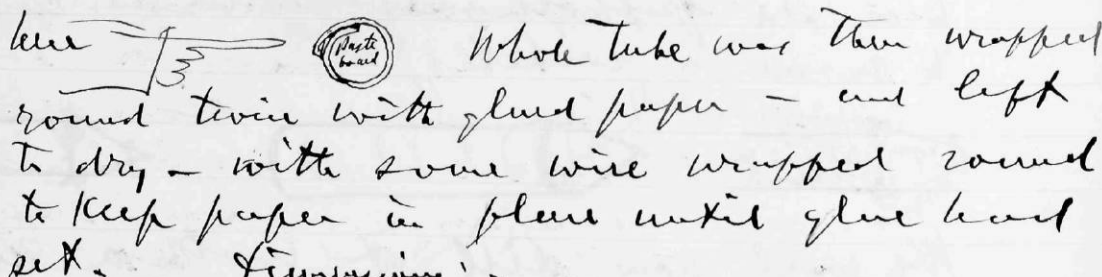 here Paste board Whole tube was then wrapped
round twice with glued paper - and left
to dry - with some wire wrapped round
to keep paper in place until glue had
set. Dimensions: -